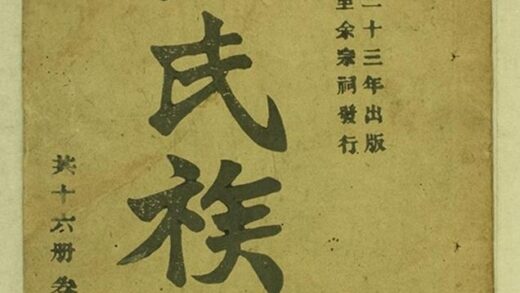 二十三年出版
余宗祠發行
氏族
共十六册